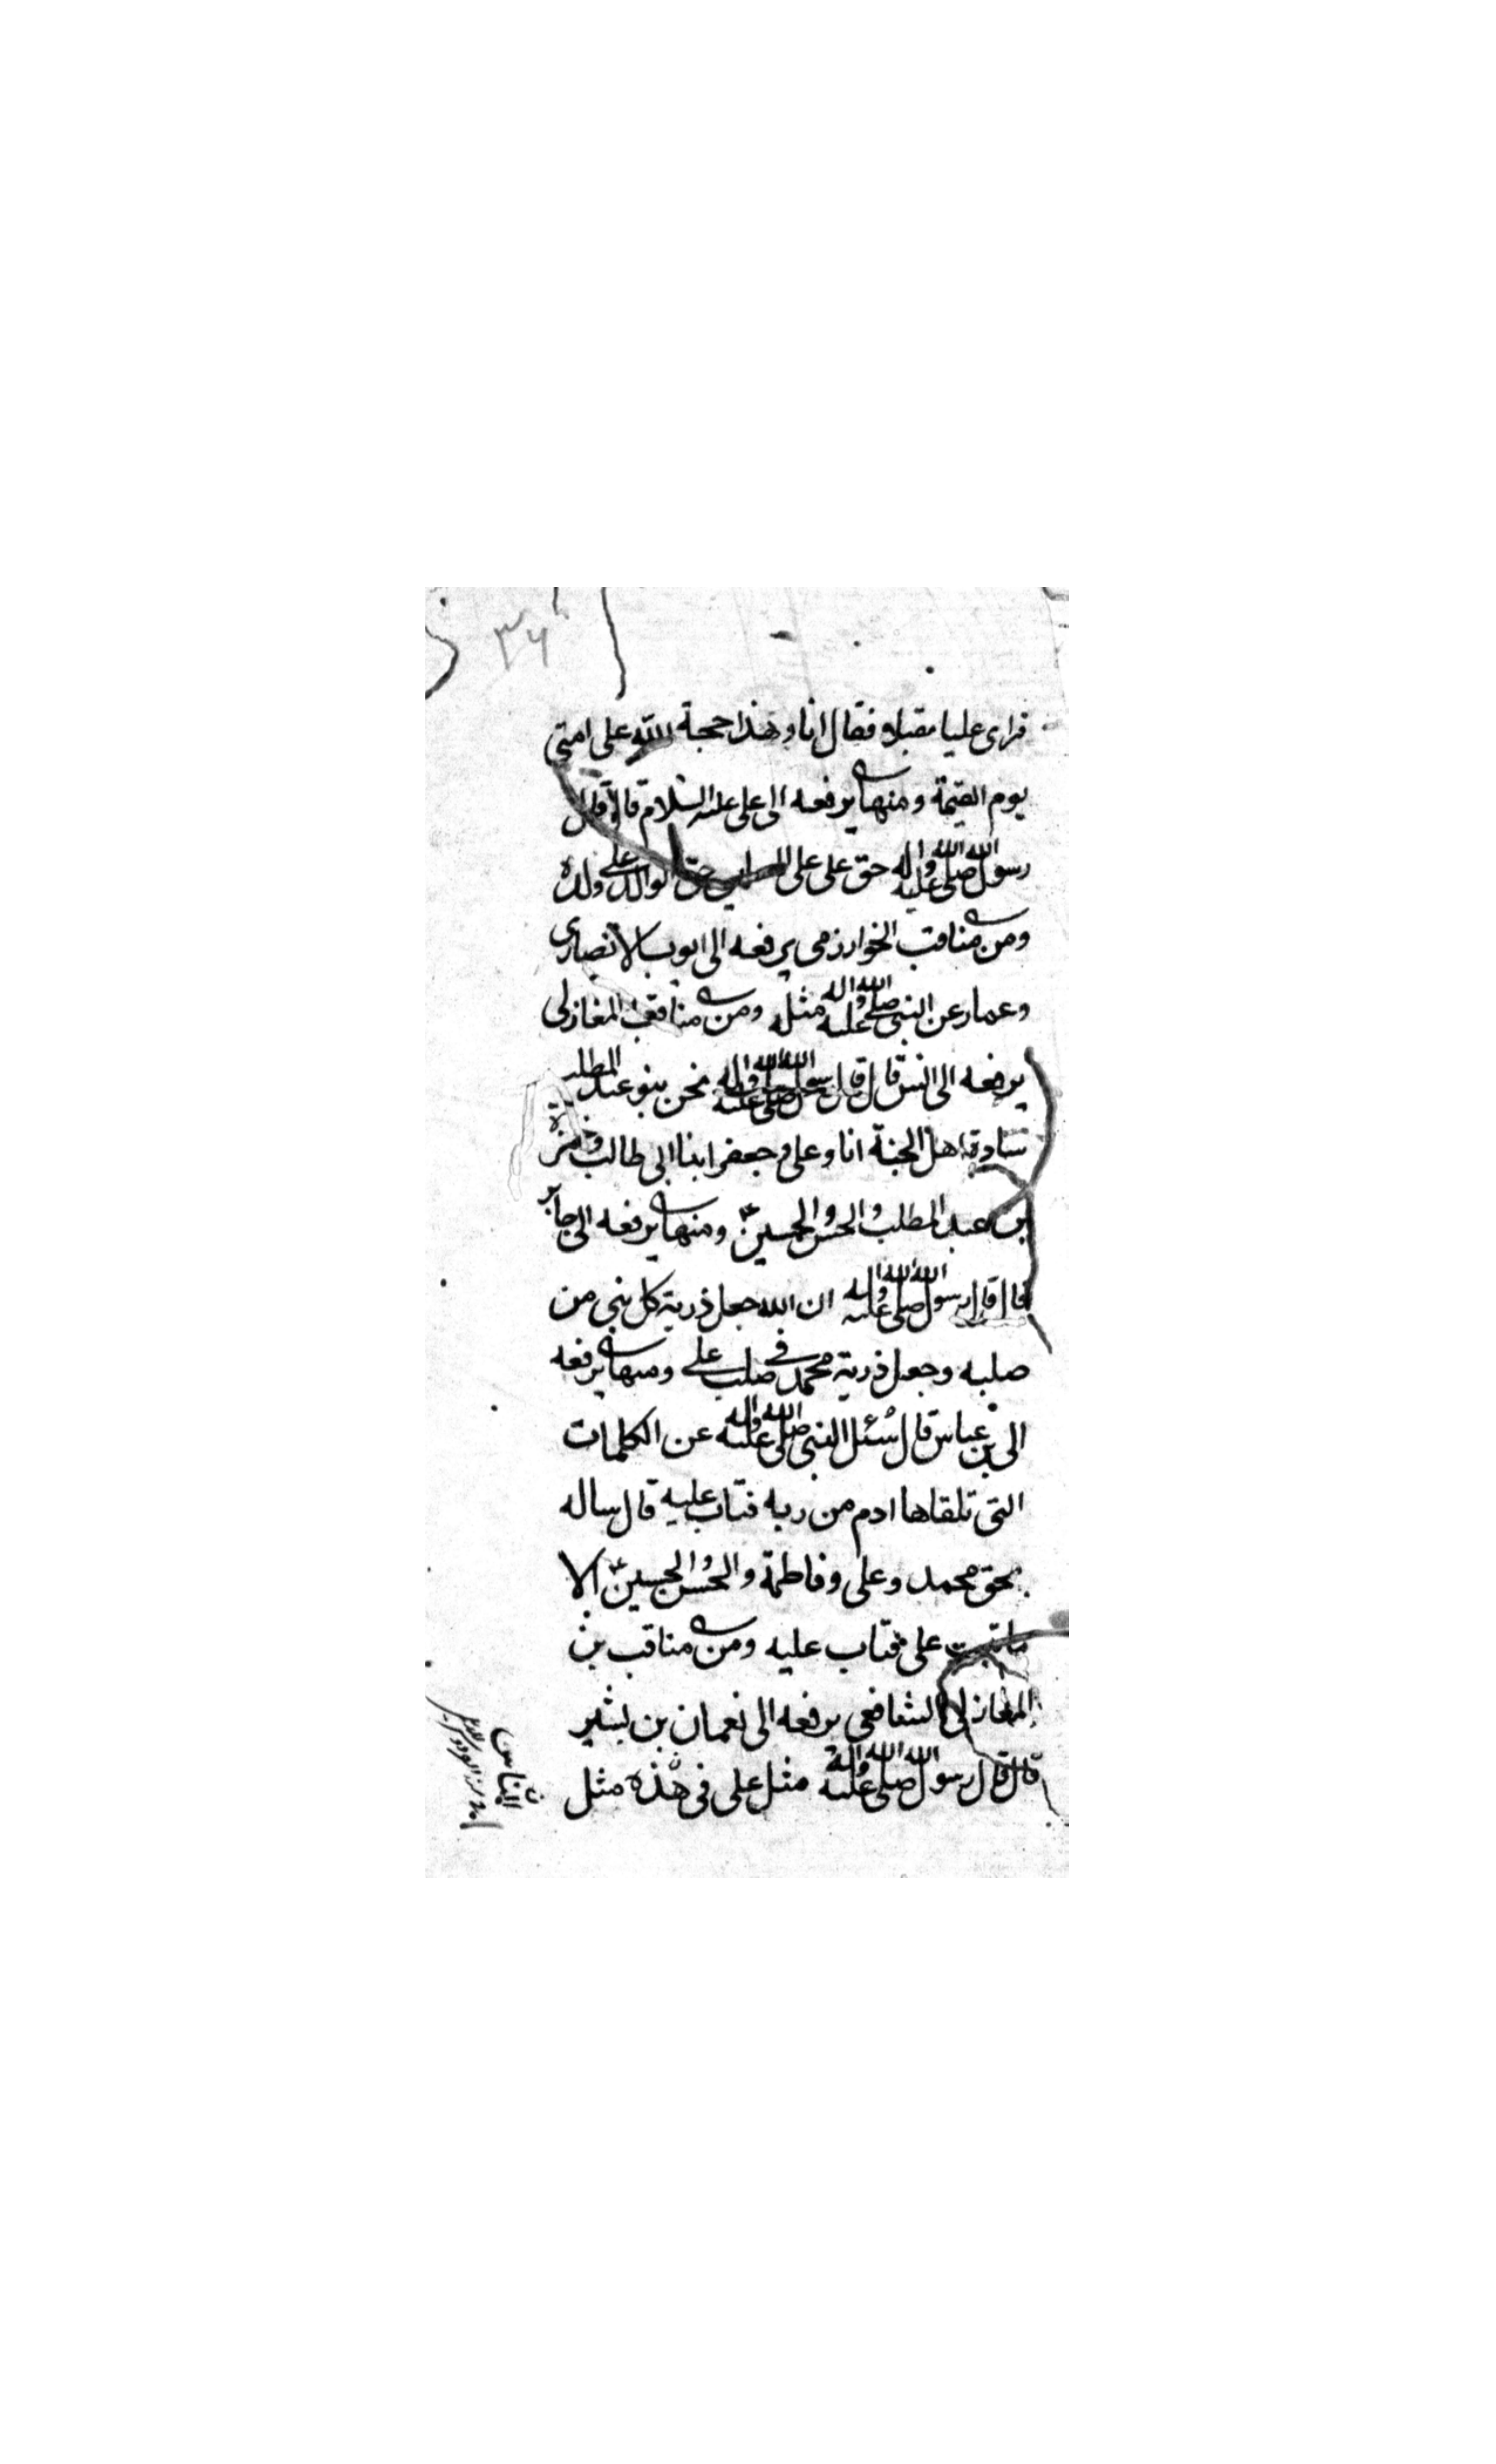 ٣٦
فراى عليا مقبلا فقال انا وهذا حجة الله على امتى
يوم القيمة ومنها يرفعه الى على عليه السلام قال قال
رسول الله صلى الله عليه واله حق على على المسلمين حق الوالد على ولده
ومن مناقب الخوارزمى يرفعه الى ايوب الانصارى
وعمار عن النبى صلى الله عليه واله مثله ومن مناقب المغازلى
يرفعه الى انس قال قال رسول الله صلى الله عليه واله نحن بنو عبد المطلب
سادة اهل الجنة انا وعلى وجعفر ابنا ابى طالب وحمزة
بن عبد المطلب والحسن والحسين ع ومنها يرفعه الى جابر
قال قال رسول الله صلى الله عليه واله ان الله جعل ذرية كل نبى من
صلبه وجعل ذرية محمد فى صلب على ومنها يرفعه
الى بن عباس قال سئل النبى صلى الله عليه واله عن الكلمات
التى تلقاها ادم من ربه فتاب عليه قال ساله
بحق محمد وعلى وفاطمة والحسن والحسين ع الا
ما تبت على فتاب عليه ومن مناقب بن
المغازلى الشافعى يرفعه الى نعمان بن بشير
قال قال رسول الله صلى الله عليه واله مثل على فى هذه مثل
الناس